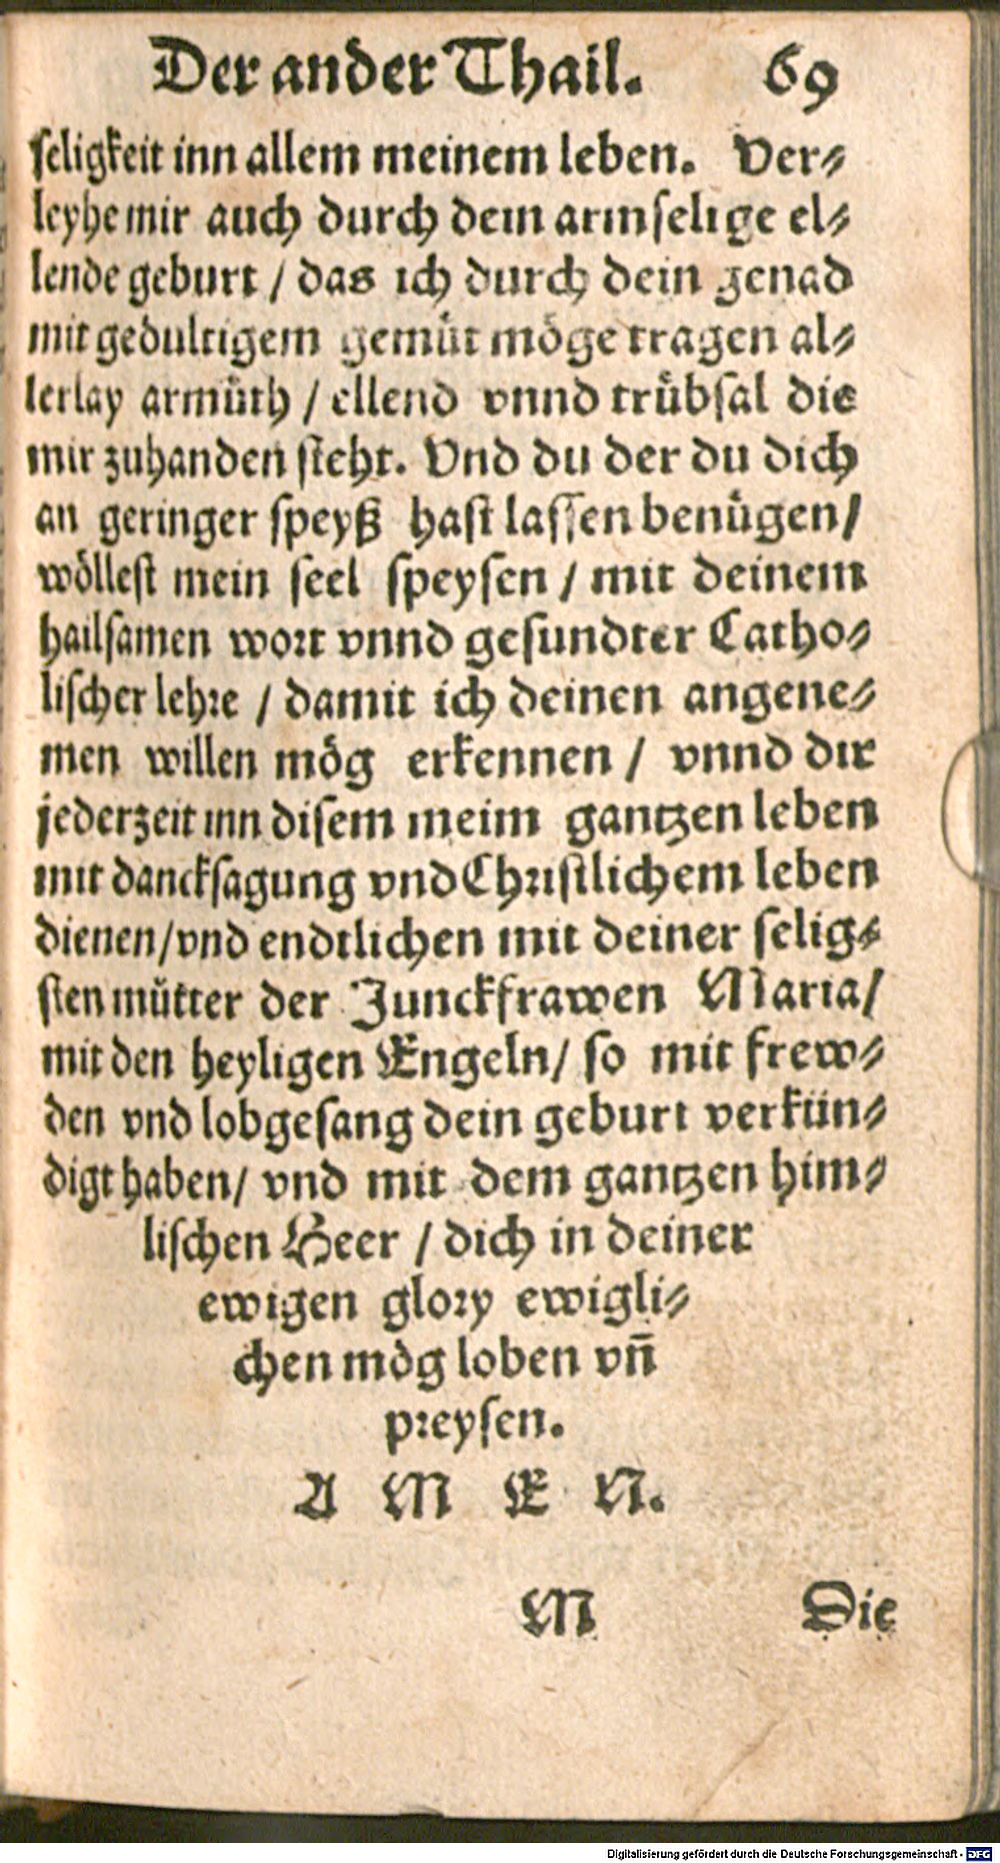 Der ander Thail. 69
ſeligkeit inn allem meinem leben. Ver⸗
leyhe mir auch durch dein armſelige el⸗
lende geburt / das ich durch dein genad
mit gedultigem gemuͤt moͤge tragen al⸗
lerlay armuͤth / ellend vnnd truͤbſal die
mir zuhanden ſteht. Vnd du der du dich
an geringer ſpeyß haſt laſſen benuͤgen/
woͤlleſt mein ſeel ſpeyſen / mit deinem
hailſamen wort vnnd geſundter Catho⸗
liſcher lehre / damit ich deinen angene⸗
men willen moͤg erkennen / vnnd dir
jederzeit inn diſem meim gantzen leben
mit danckſagung vnd Chriſtlichem leben
dienen/vnd endtlichen mit deiner ſelig⸗
ſten muͤtter der Junckfrawen Maria/
mit den heyligen Engeln/ ſo mit frew⸗
den vnd lobgeſang dein geburt verkün⸗
digt haben/ vnd mit dem gantzen him⸗
liſchen Heer / dich in deiner
ewigen glory ewigli⸗
chen moͤg loben vn̄
preyſen.
A M E N.
M Die
Digitalisierung gefördert durch die Deutsche Forschungsgemeinschaft - DFG